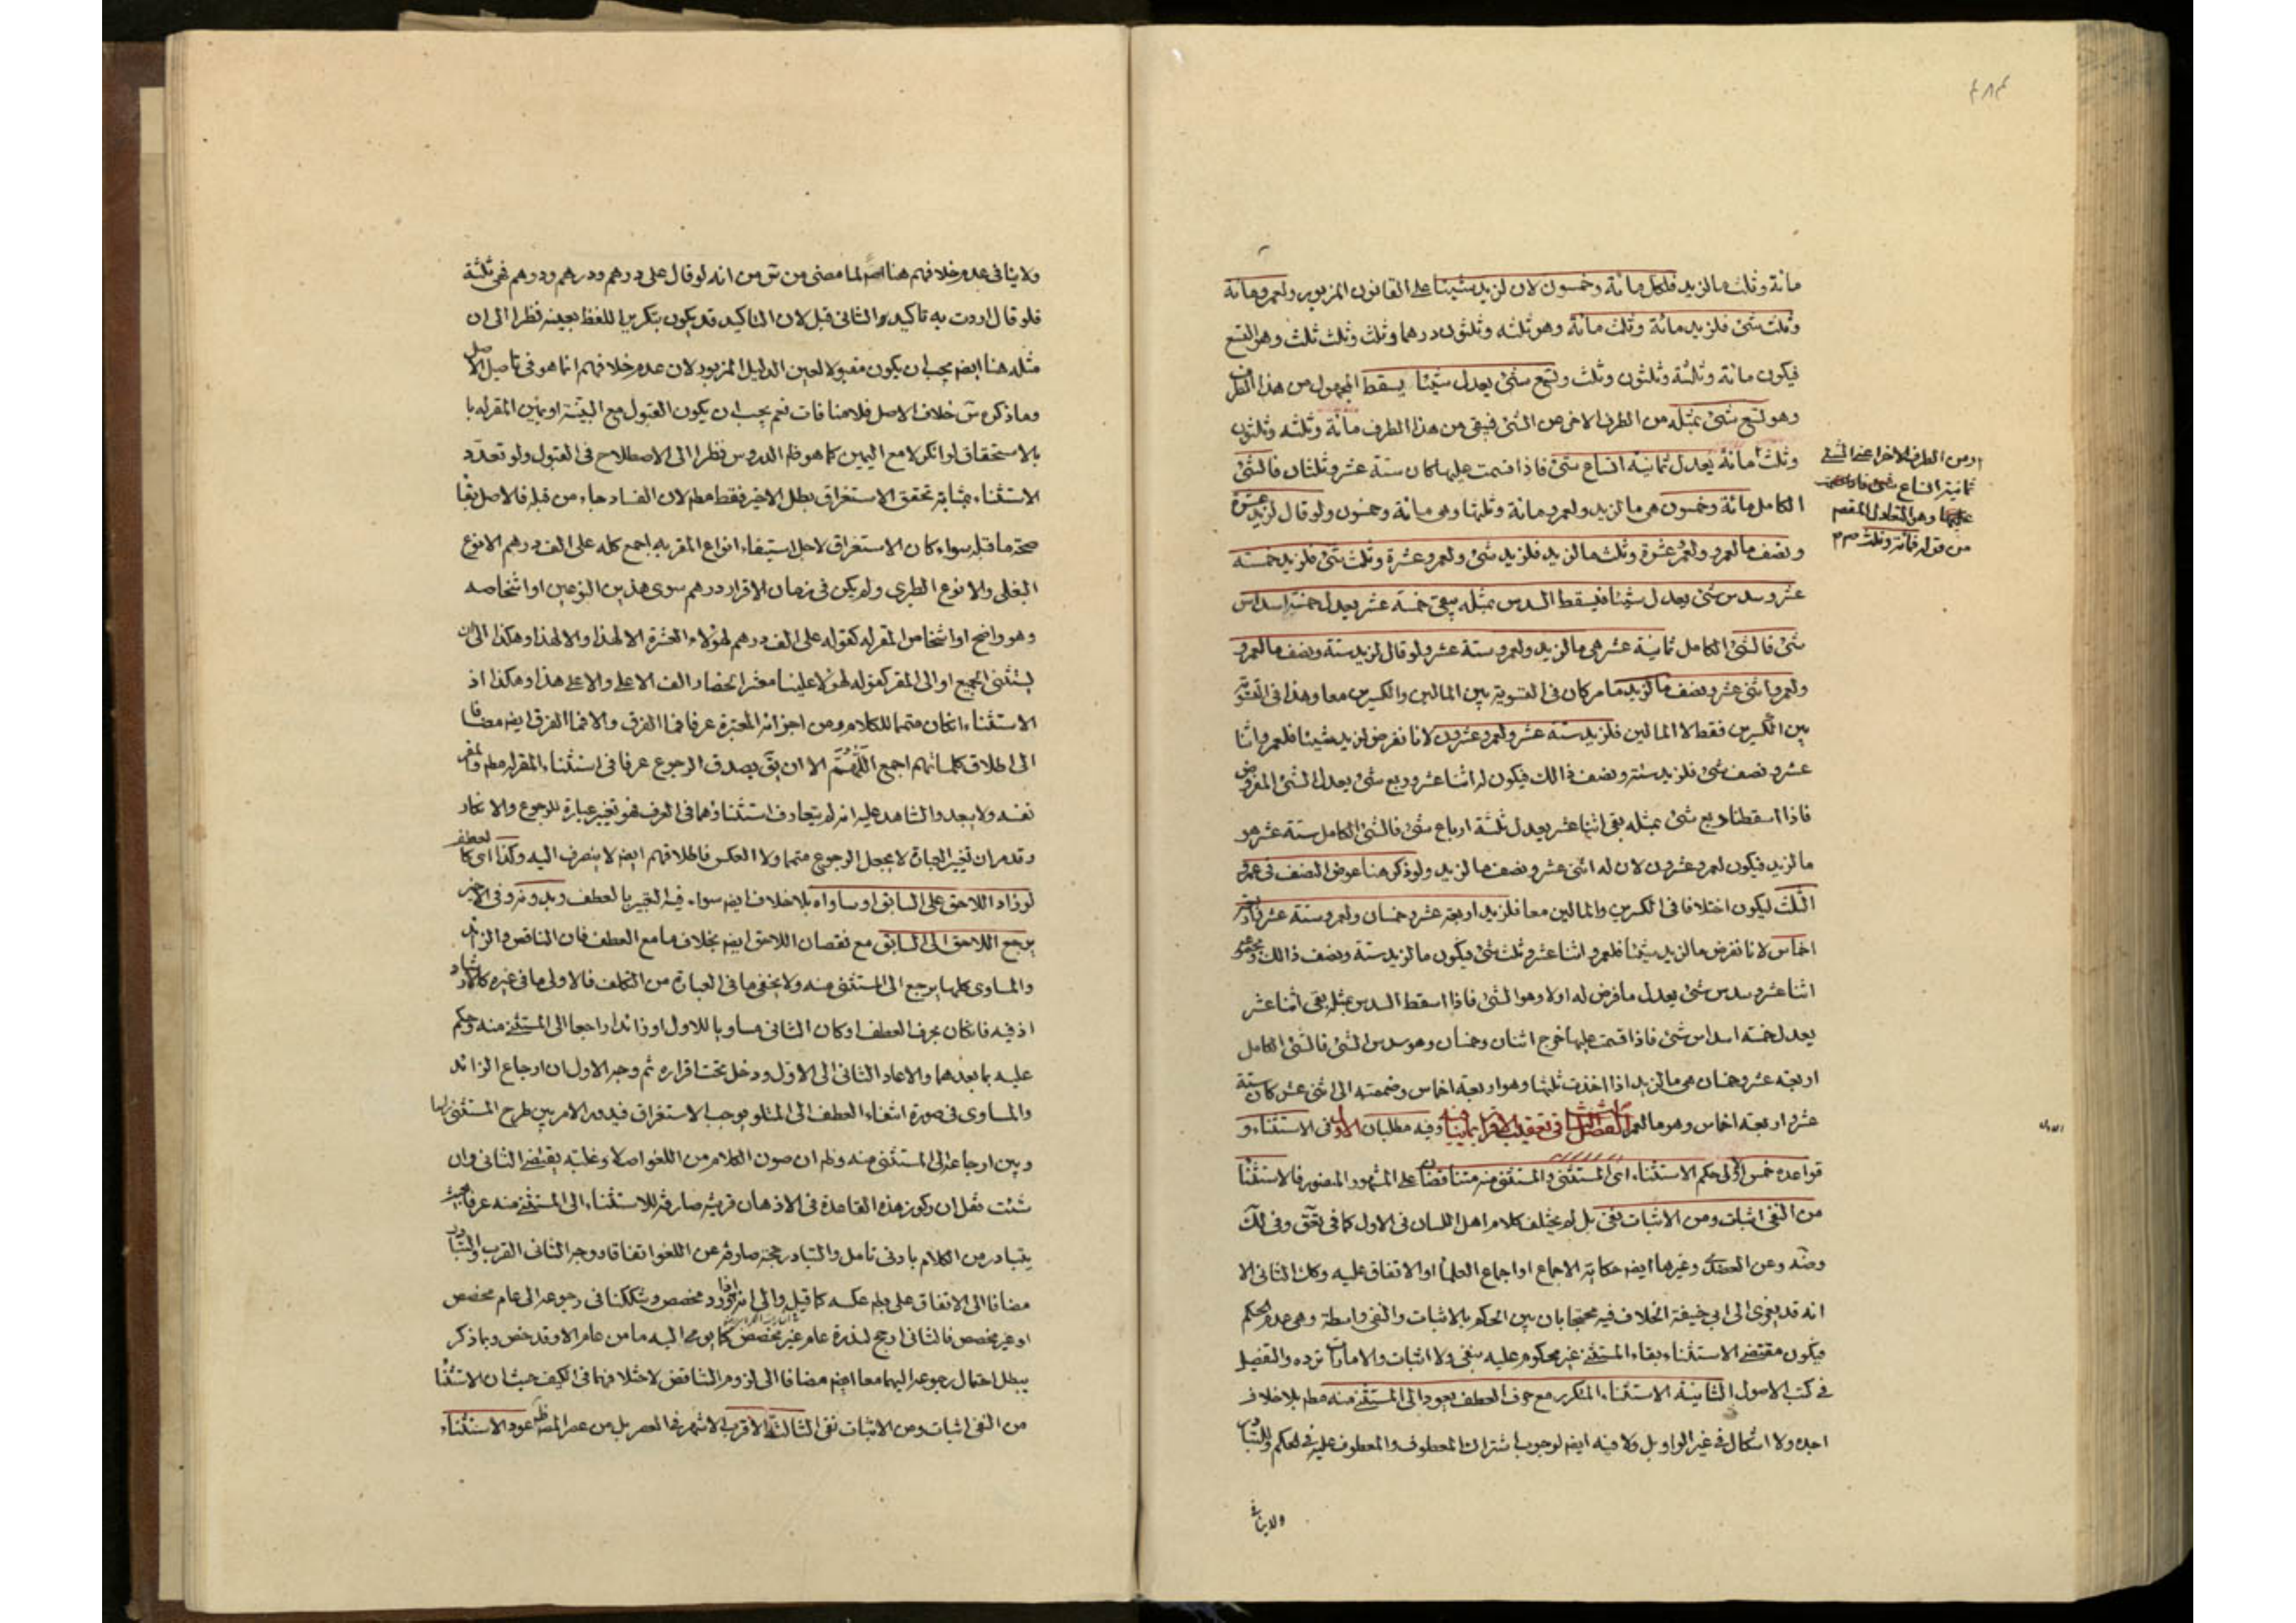 ٤٨٣
مائة وثلث ما لزيد فلكل مائة وخمسون لان لزيد شيئا على القانون المزبور ولعمرو مائة
وثلث شئ فلزيد مائة وثلث مائة وهو ثلثه وثلثون درهما وثلث وثلث ثلث وهو التسع
فيكون مائة وثلثة وثلثون وثلث وتسع شئ يعدل شيئا يسقط المجهول من هذا الطرف
وهو تسع شئ بمثله من الطرف الاخر من الشئ فيبقى من هذا الطرف مائة وثلثه وثلثون
وثلث مائة يعدل ثمانية اتساع شئ فاذا قسمت عليها كان ستة عشر وثلثان فالشئ
الكامل مائة وخمسون هى ما لزيد ولعمرو مائة وثلثها وهى مائة وخمسون ولو قال لزيد عشرة
ونصف ما لعمرو ولعمرو عشرة وثلث ما لزيد فلزيد شئ ولعمرو عشرة وثلث شئ فلزيد خمسة
عشر وسدس شئ يعدل شيئا فيسقط السدس بمثله يبقى خمسة عشر يعدل خمسة اسداس
شئ فالشئ الكامل ثمانية عشر هى ما لزيد ولعمرو ستة عشر ولو قال لزيد ستة ونصف ما لعمرو
ولعمرو اثنى عشر ونصف ما لزيد ما مر كان فى التسوية بين المالين والكسرين معا وهذا فى التسوية
بين الكسرين فقط لا المالين فلزيد ستة عشر ولعمرو عشرون لانا نفرض لزيد شيئا فلعمرو اثنا
عشر ونصف شئ فلزيد ستة ونصف ذالك فيكون له اثنا عشر وربع شئ يعدل الشئ المفروض
فاذا اسقطنا ربع شئ بمثله بقى اثنا عشر يعدل ثلثة ارباع شئ فالشئ الكامل ستة عشر هو
ما لزيد فيكون لعمرو عشرون لان له اثنى عشر ونصف ما لزيد ولو ذكر هنا عوض النصف فى عمرو
الثلث ليكون اختلافا فى الكسرين والمالين معا فلزيد اربعة عشر وخمسان ولعمرو ستة عشر واربعة
اخماس لانا نفرض ما لزيد شيئا فلعمرو اثنا عشر وثلث شئ فيكون ما لزيد ستة ونصف ذالك
اثنا عشر وسدس شئ يعدل ما فرض له اولا وهو الشئ فاذا اسقط السدس بمثله بقى اثنا عشر
يعدل خمسة اسداس شئ فاذا قسمت عليها خرج اثنان وخمسان وهو سدس الشئ فالشئ الكامل
اربعة عشر وخمسان هى ما لزيد اذا اخذت ثلثها وهو اربعة اخماس وضممته الى اثنى عشر كان ستة
عشر واربعة اخماس وهو ما لعمرو الفصل الثالث فى تعقيب الاقرار بما ينافيه وفيه مطلبان الاول فى الاستثناء و
قواعده خمس الاولى حكم الاستثناء اى المستثنى والمستثنى منه متناقضان على المشهور المنصور فالاستثناء
من النفى اثبات ومن الاثبات نفى بل لم يختلف كلام اهل اللسان فى الاول كما فى وفى لك
وضه وعن العضدى وغيرها ايضه حكاية الاجماع او اجماع العلماء او الاتفاق عليه وكك الثانى الا
انه قد يعزى الى ابى حنيفة الخلاف فيه محتجا بان بين الحكم بالاثبات والنفى واسطة وهى عدم الحكم
فيكون مقتضى الاستثناء بقاء المستثنى غير محكوم عليه بنفى ولا اثبات والامارات ترده والتفصيل
فى كتب الاصول الثانية الاستثناء المتكرر مع حرف العطف يعود الى المستثنى منه مطم بلا خلاف
اجده ولا اشكال فى غير الواو بل ولا فيه ايضه لوجوب اشتراك المعطوف والمعطوف عليه فى الحكم وللتبادر
ولاينافى
او من الطرف الاخر اعنى الشئ
ثمانية اتساع
عليها وهو المعادل المقسم
من قوله فمائة وثلث
الاول
ولا ينافى عدم خلافهم هنا لما مضى من من انه لو قال على درهم ودرهم ودرهم فهى ثلثة
فلو قال اردت به تاكيد الثانى قبل لان التاكيد قد يكون بتكرير اللفظ بعينه نظرا الى ان
مثله هنا ايضه يجب ان يكون مقبولا لعين الدليل المزبور لان عدم خلافهم انما هو فى تاصيل الاصل
وما ذكره خلاف الاصل فلا منافات نعم يجب ان يكون القبول مع البينة او يمين المقر له با
بالاستحقاق لو انكر لا مع اليمين كما هو فى الدروس نظرا الى الاصطلاح فى القبول ولو تعدد
الاستثناء بمثابة تحقق الاستغراق بطل الاخير فقط مطم لان الفساد جاء من قبله فالاصل بقا
صحة ما قبله سواء كان الاستغراق لاجل استيفاء انواع المقر به اجمع كله على الف درهم الا نوع
البغلى والا نوع الطبرى ولم يكن فى زمان الاقرار درهم سوى هذين النوعين او اشخاصه
وهو واضح او اشخاص المقر له كقوله على الف درهم لهؤلاء العشرة الا لهذا والا لهذا وهكذا الى ان
يستثنى الجميع او الى المقر كقوله لهؤلاء علينا معشر الحضار الف الا على والا على هذا وهكذا اذ
الاستثناء ان كان متمما للكلام ومن اجزائه المعتبرة عرفا فما الفرق والا فما الفرق ايضه مضافا
الى اطلاق كلماتهم اجمع اللهم الا ان يق بصدق الرجوع عرفا فى استثناء المقر له مطم والمقر
نفسه ولا يبعد والشاهد عليه انه لم يتعارف استثناؤهما فى العرف فهو تغيير عبارة للرجوع والانكار
وقد مر ان تغيير العبارة لا يجعل الرجوع متمما ولا العكس فاطلاقهم ايضه لا ينصرف اليه وكذا اى كالعطف
لو زاد اللاحق على السابق او ساواه بلا خلاف ايضه سواء فيه التعبير بالعطف وبدونه وفى الاخير
يرجع اللاحق الى السابق مع نقصان اللاحق ايضه بخلاف ما مع العطف فان الناقص والزائد
والمساوى كلها يرجع الى المستثنى منه ولا يخفى ما فى العبارة من التكلف فالاولى ما فى غيره كالارشاد
اذ فيه فان كان بحرف العطف او كان الثانى مساويا للاول او زائدا راجعا الى المستثنى منه وحكم
عليه بما بعدهما والا عاد الثانى الى الاول ودخل تحت اقراره ثم وجه الاول ان ارجاع الزائد
والمساوى فى صورة انتفاء العطف الى المتلو يوجب الاستغراق فيدور الامر بين طرح المستثنى
وبين ارجاعه الى المستثنى منه وظم ان صون الكلام من اللغو اصلا وغلبة يقتضى الثانى وان
شئت فقل ان ركوز هذه القاعدة فى الاذهان قرينة صارفة للاستثناء الى المستثنى منه عرفا بحيث
يتبادر من الكلام بادنى تامل والتبادر حجة صارفة عن اللغو اتفاقا ووجه الثانى القرب والتبادر
مضافا الى الاتفاق على عكسه كما قيل والى انه اذا ورد مخصص وشككنا فى رجوعه الى عام مخصص
او غير مخصص فالثانى ارجح لندرة عام غير مخصص كما يومى اليه ما من عام الا وقد خص وبما ذكر
يبطل احتمال رجوعه اليهما معا ايضه مضافا الى لزوم التناقض لاختلافهما فى الكيف حيث ان الاستثناء
من النفى اثبات ومن الاثبات نفى الثالثة الاقرب الاشهر فى العصر بل من عصر المصه عود الاستثناء